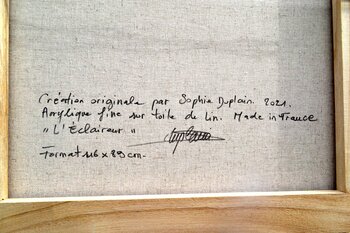 Création originale par Sophie Duplain. 2021.
Acrylique fine sur toile de Lin. Made in France
"L'Éclaireur."
Format 116 x 89 cm.